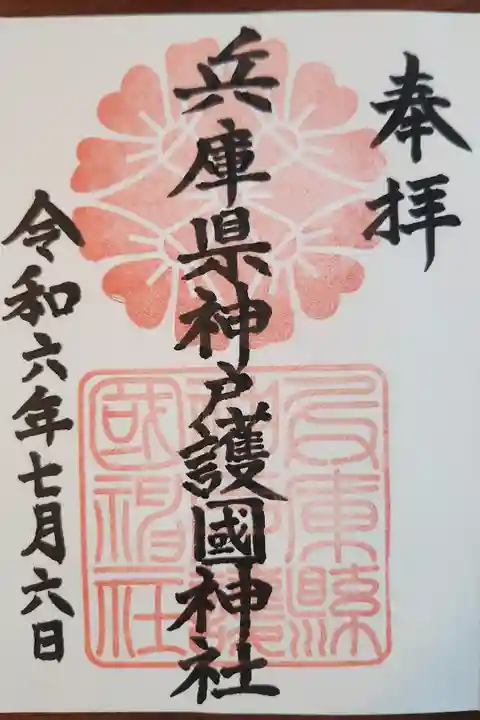 奉拝
兵庫県神戸護國神社
令和六年七月六日
兵庫縣
神戸護
國神社